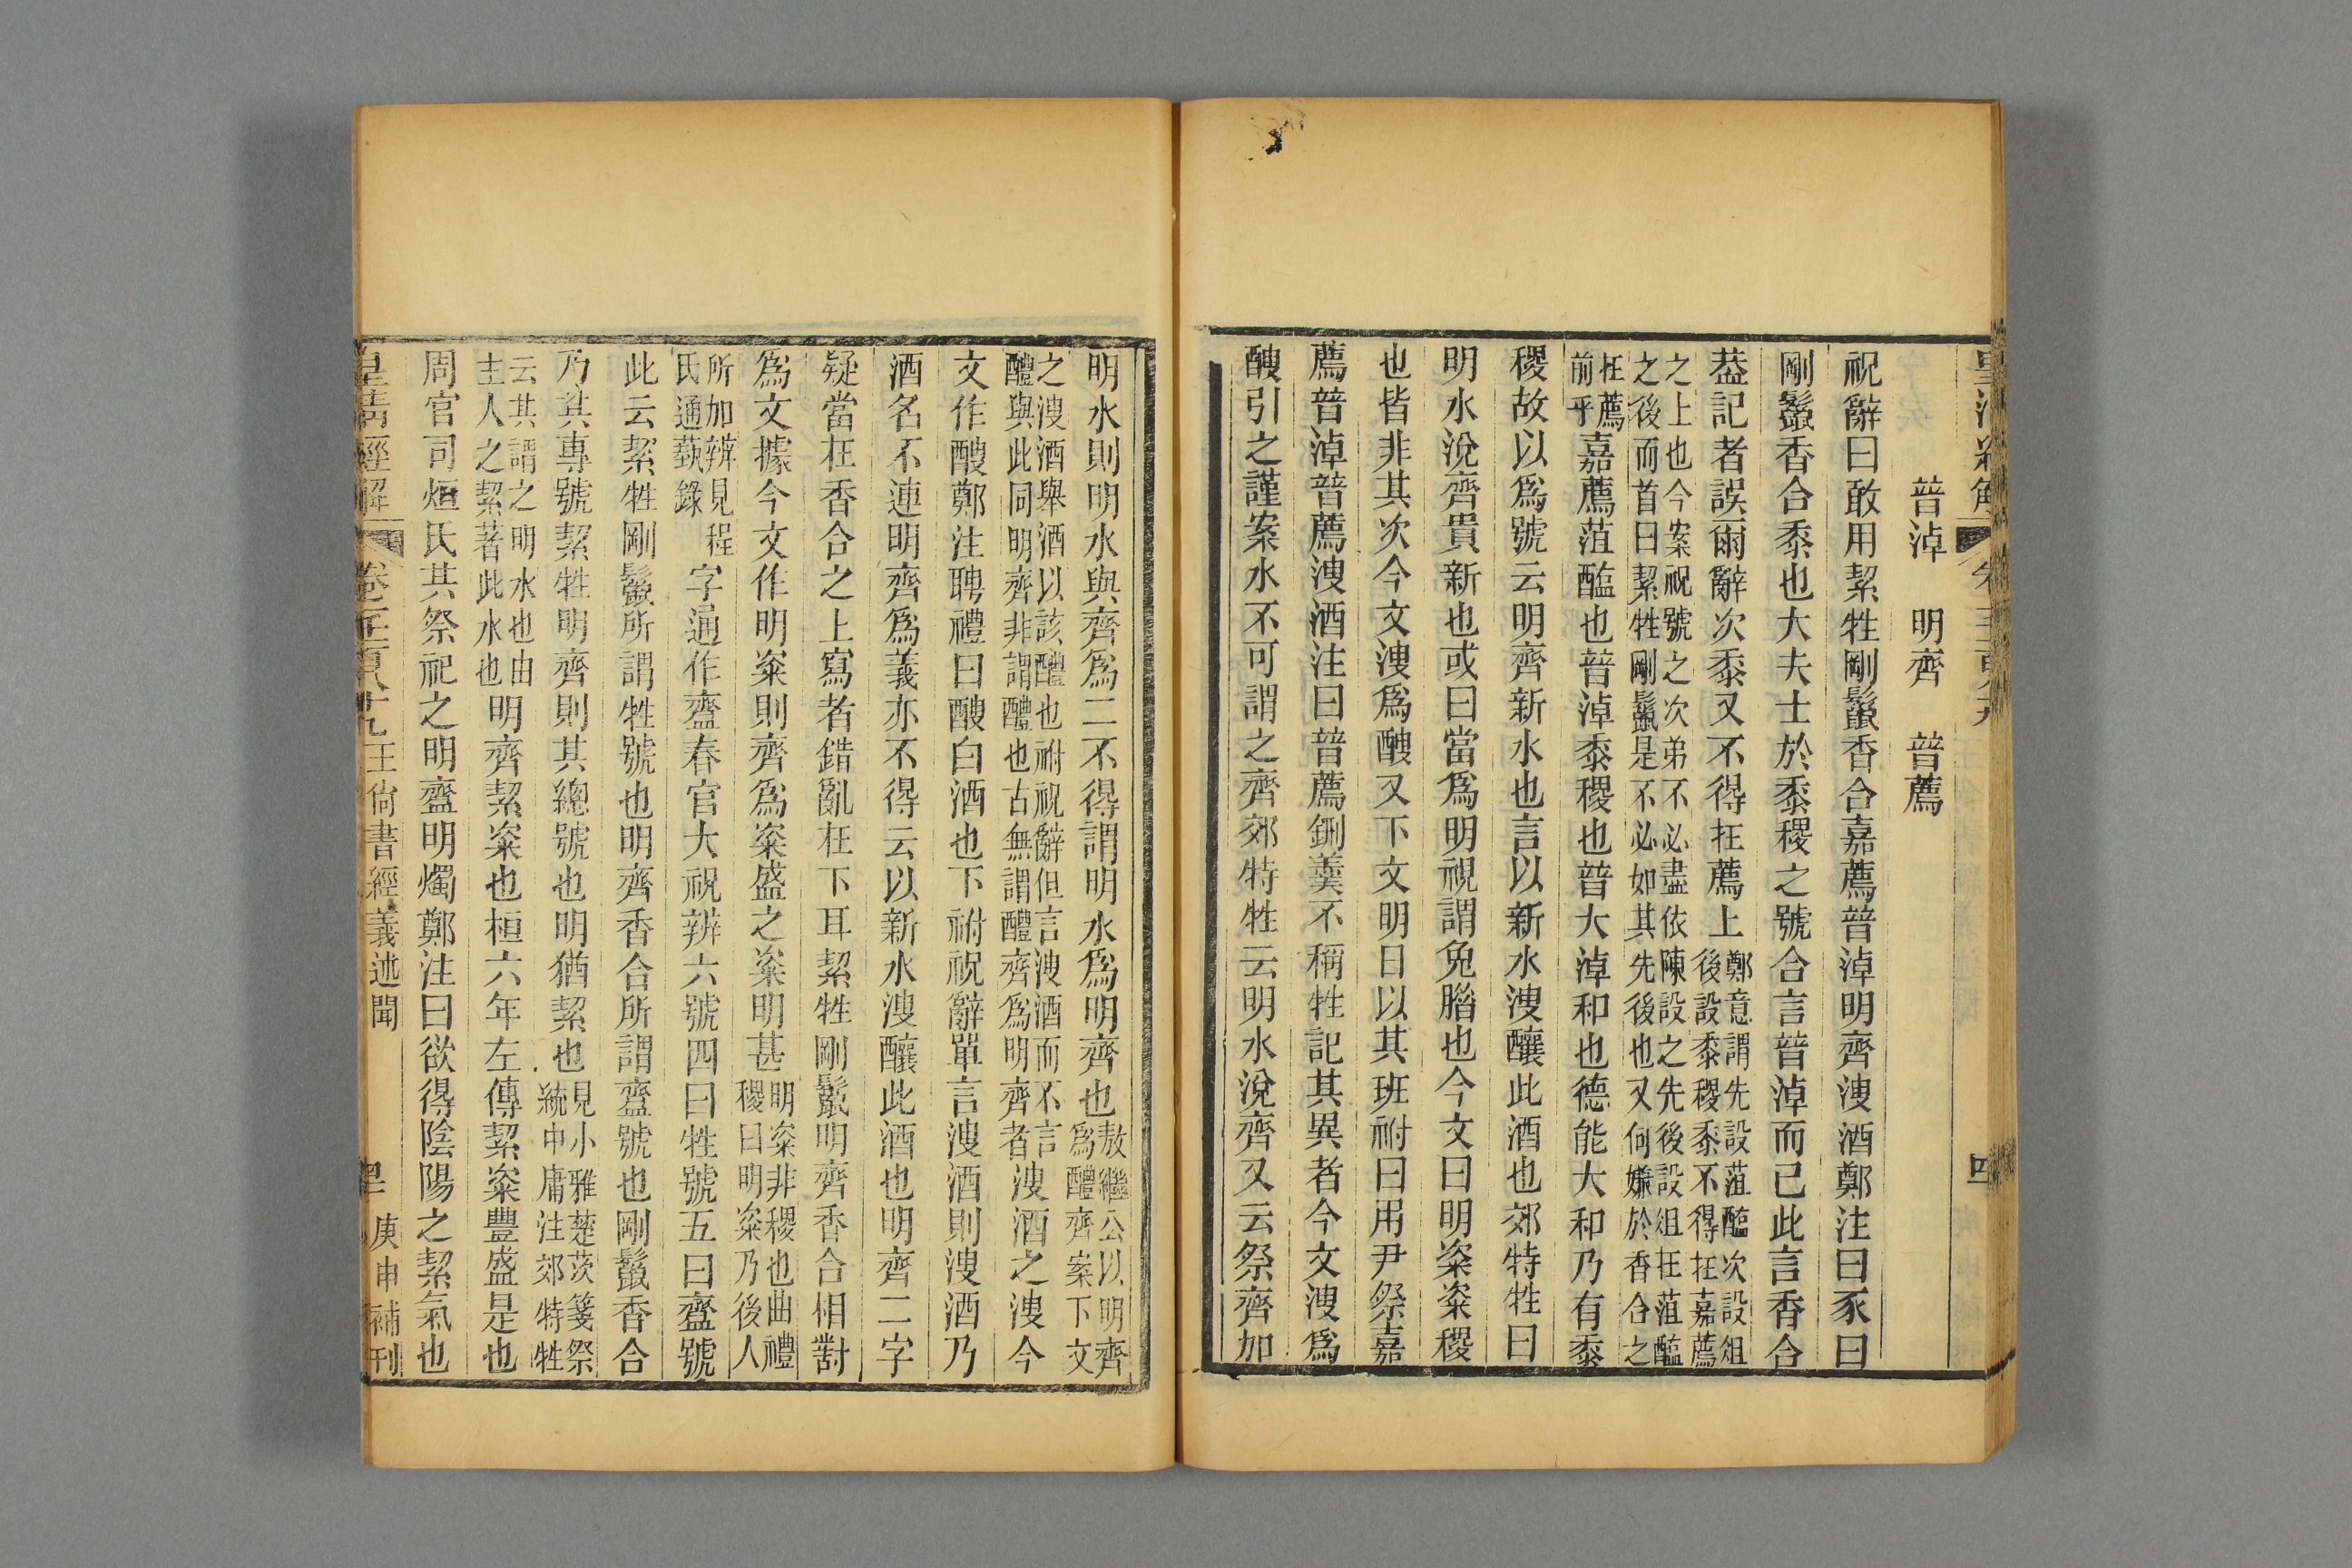 普淖　明齊　普薦
祝辭曰敢用絜牲剛鬣香合嘉薦普淖明齊溲酒鄭注曰豕曰
剛鬣香合黍也大夫士於黍稷之號合言普淖而已此言香合
葢記者誤爾辭次黍又不得在薦上鄭意謂先設菹醢次設俎後設黍稷黍不得在嘉薦
之上也今案祝號之次弟不必盡依陳設之先後設俎在菹醢之後而首曰絜牲剛鬣是不必如其先後也又何嫌於香合之
在薦前乎嘉薦菹醢也普淖黍稷也普大淖和也德能大和乃有黍
稷故以爲號云明齊新水也言以新水溲釀此酒也郊特牲曰
明水涚齊貴新也或曰當爲明視謂兔腊也今文曰明粢粢稷
也皆非其次今文溲爲醙又下文明日以其班祔曰用尹祭嘉
薦普淖普薦溲酒注曰普薦鉶羹不稱牲記其異者今文溲爲
醙引之謹案水不可謂之齊郊特牲云明水涚齊又云祭齊加
明水則明水與齊爲二不得謂明水爲明齊也敖繼公以明齊爲醴齊案下文
之溲酒舉酒以該醴也祔祝辭但言溲酒而不言醴與此同明齊非謂醴也古無謂醴齊爲明齊者溲酒之溲今
文作醙鄭注聘禮曰醙白酒也下祔祝辭單言溲酒則溲酒乃
酒名不連明齊爲義亦不得云以新水溲釀此酒也明齊二字
疑當在香合之上寫者錯亂在下耳絜牲剛鬣明齊香合相對
爲文據今文作明粢則齊爲粢盛之粢明甚明粢非稷也曲禮稷曰明粢乃後人
所加辨見程氏通藝錄字通作齍春官大祝辨六號四曰牲號五曰齍號
此云絜牲剛鬣所謂牲號也明齊香合所謂齍號也剛鬣香合
乃其專號絜牲明齊則其總號也明猶絜也見小雅楚茨箋祭統中庸注郊特牲
云其謂之明水也由主人之絜著此水也明齊絜粢也桓六年左傳絜粢豐盛是也
周官司烜氏其祭祀之明齍明燭鄭注曰欲得陰陽之絜氣也
皇清經解　卷千一百八十九　王尙書經義述聞　庚申補刊